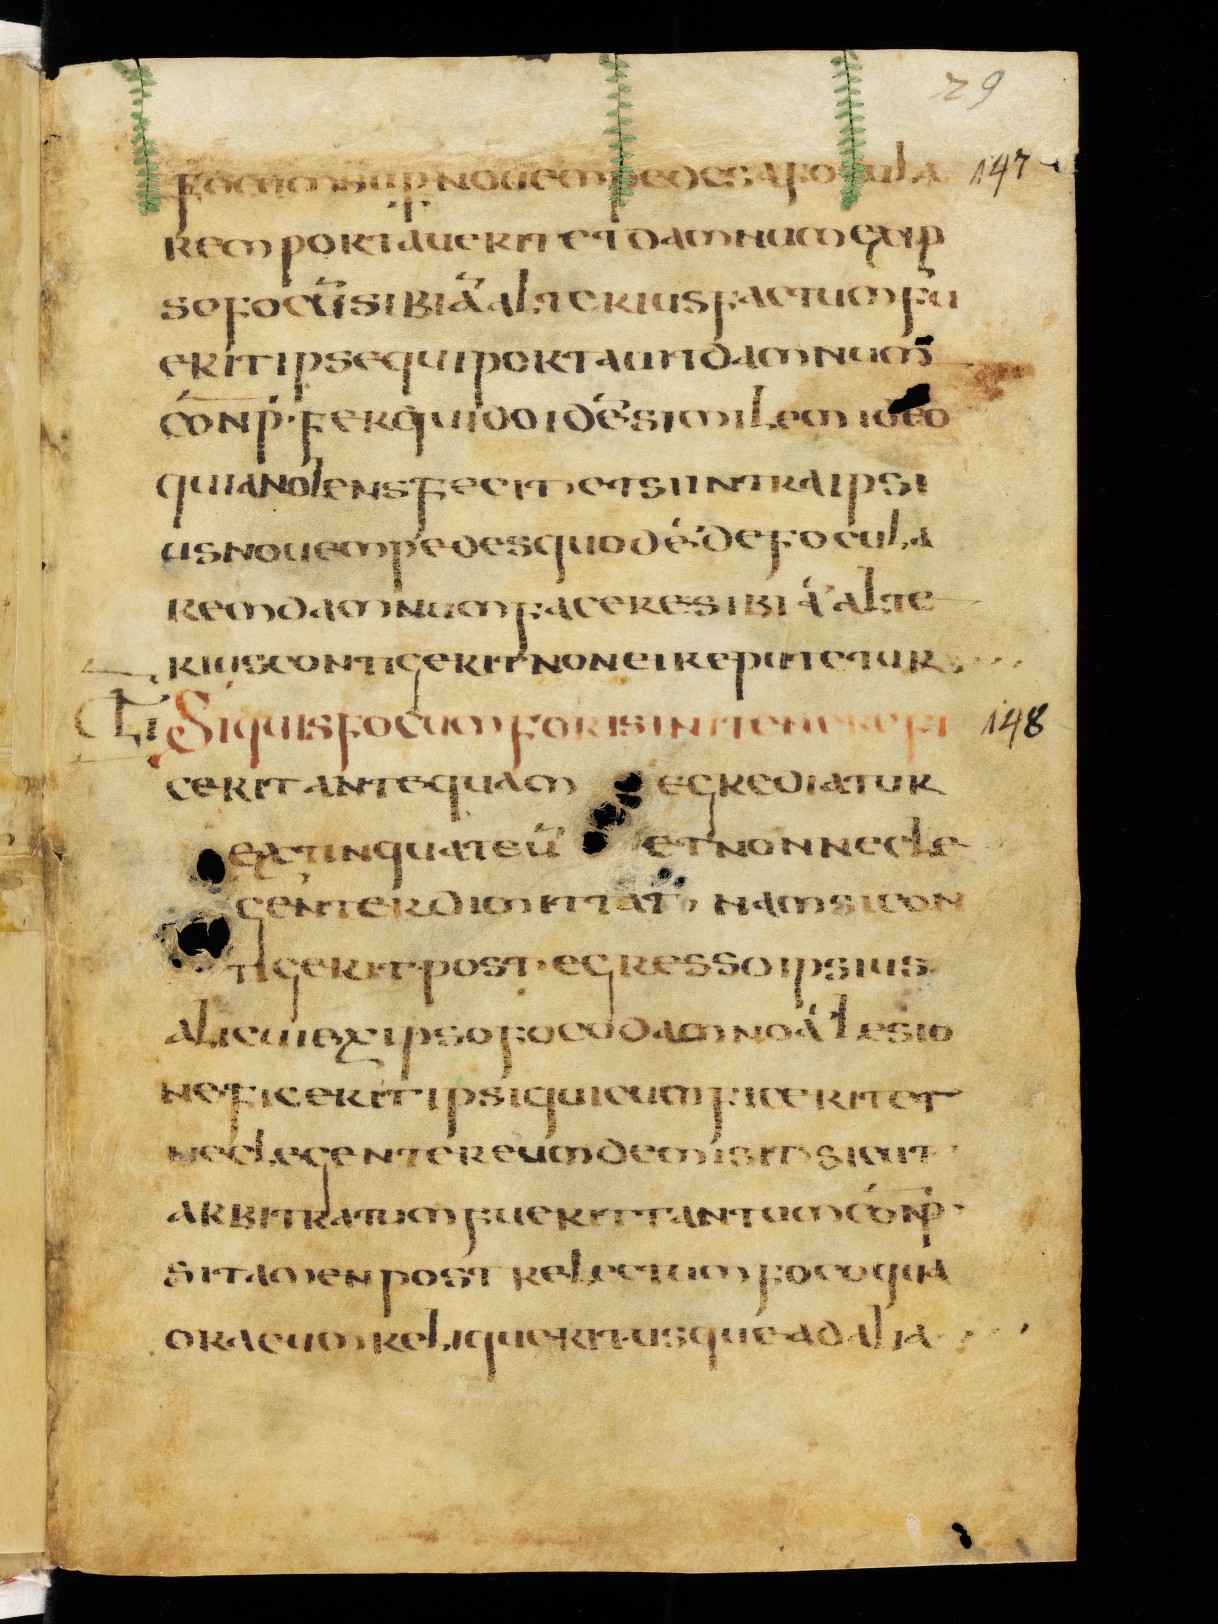 29
focum sup novem pedes a focula 147
rem portaverit et damnum ex ip
so focū sibi ā alterius factum fu
erit ipse qui portavit damnum̄
cōnp· ferqui do idē similem ideo
quia nolens fecit et si intra ipsi
us novem pedes quod ē de focula
rem damnum facere sibi ā alte
rius contigerit non ei reputetur
CLI Si quis focum foris in itenere fi 148
cerit antequam egrediatur
extinquat eū et non necle
genter dimittat nam si con
tigerit post egresso ipsius
alicui ex ipso foco damno ā lesio
ne ficerit ipsi qui cum ficerit et
neclegenter eum demisit sicut
arbitratum fuerit tantum cōnp·
si tamen post relectum foco qua
ora cum reliquerit usque ad alia